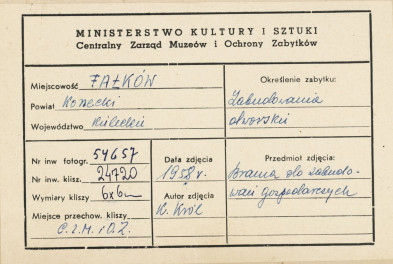 MINISTERSTWO KULTURY I SZTUKI
Centralny Zarząd Muzeów i Ochrony Zabytków
Miejscowość FAŁKÓW
Powiat Konecki
Województwo kieleckie
Określenie zabytku:
Zabudowania
dworskie
Nr inw fotogr. 54657
Nr inw. klisz. 24720
Wymiary kliszy 6x6
Miejsce przechow. kliszy
C.Z.M. i O.Z.
Data zdjęcia
1958 r.
Autor zdjęcia
K. Król
Przedmiot zdjęcia:
Brama do zabudo-
wań gospodarczych